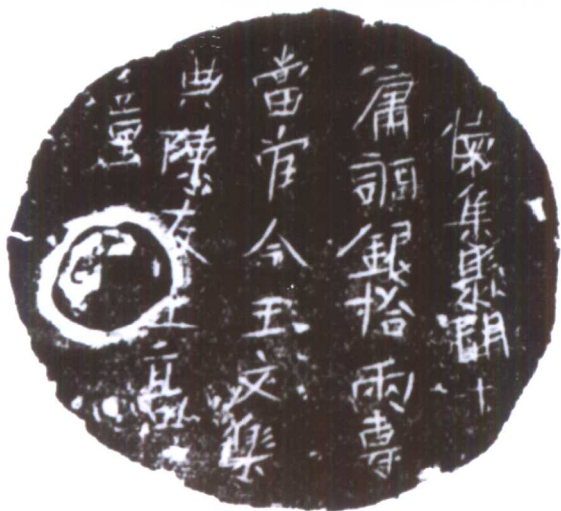 懷集縣開十
庸調銀拾兩專
當官令王文樂
典陳友匠高
童